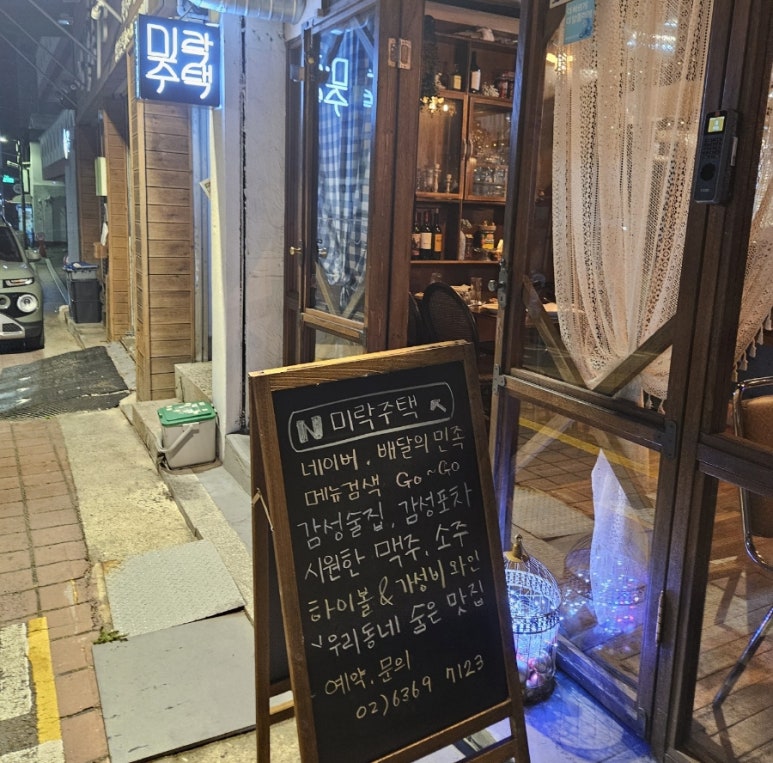 미락
주택
N 미락주택
네이버. 배달의민족
메뉴검색 Go~Go
감성술집. 감성포차
시원한 맥주. 소주
하이볼 & 가성비 와인
✓우리동네 숨은 맛집
예약. 문의
02)6369 7123